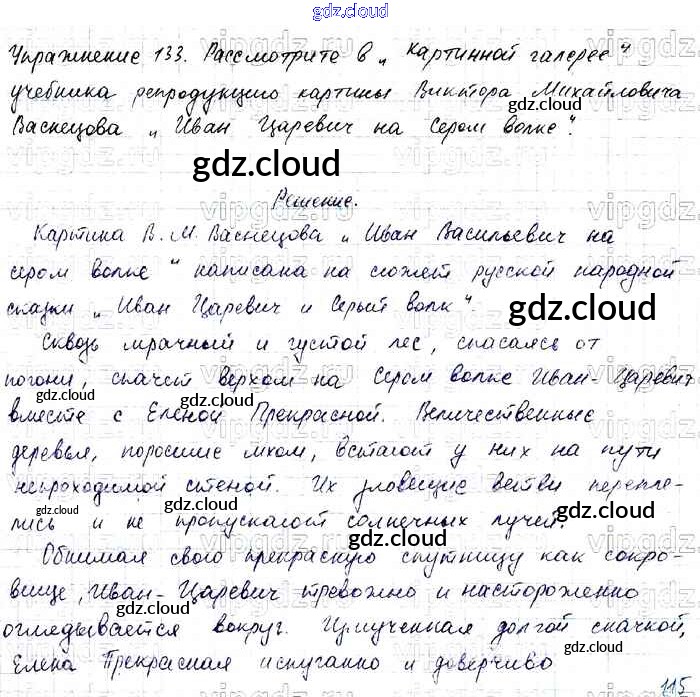 gdz.cloud
Упражнение 133. Рассмотрите в „Картинной галерее"
учебника репродукцию картины Виктора Михайловича
Васнецова „Иван Царевич на Сером волке".
gdz.cloud
Решение.
Картина В. М. Васнецова „Иван Васильевич на
сером волке" написана на сюжет русской народной
сказки „Иван Царевич и Серый волк".
gdz.cloud
Сквозь мрачный и густой лес, спасаясь от
погони, скачет верхом на Сером волке Иван-Царевич
вместе с Еленой Прекрасной. Величественные
деревья, поросшие мхом, встают у них на пути
непроходимой стеной. Их зловещие ветви перепле-
лись и не пропускают солнечных лучей.
Обнимая свою прекрасную спутницу как сокро-
вище, Иван-Царевич тревожно и настороженно
оглядывается вокруг. Измученная долгой скачкой,
Елена Прекрасная испуганно и доверчиво
115